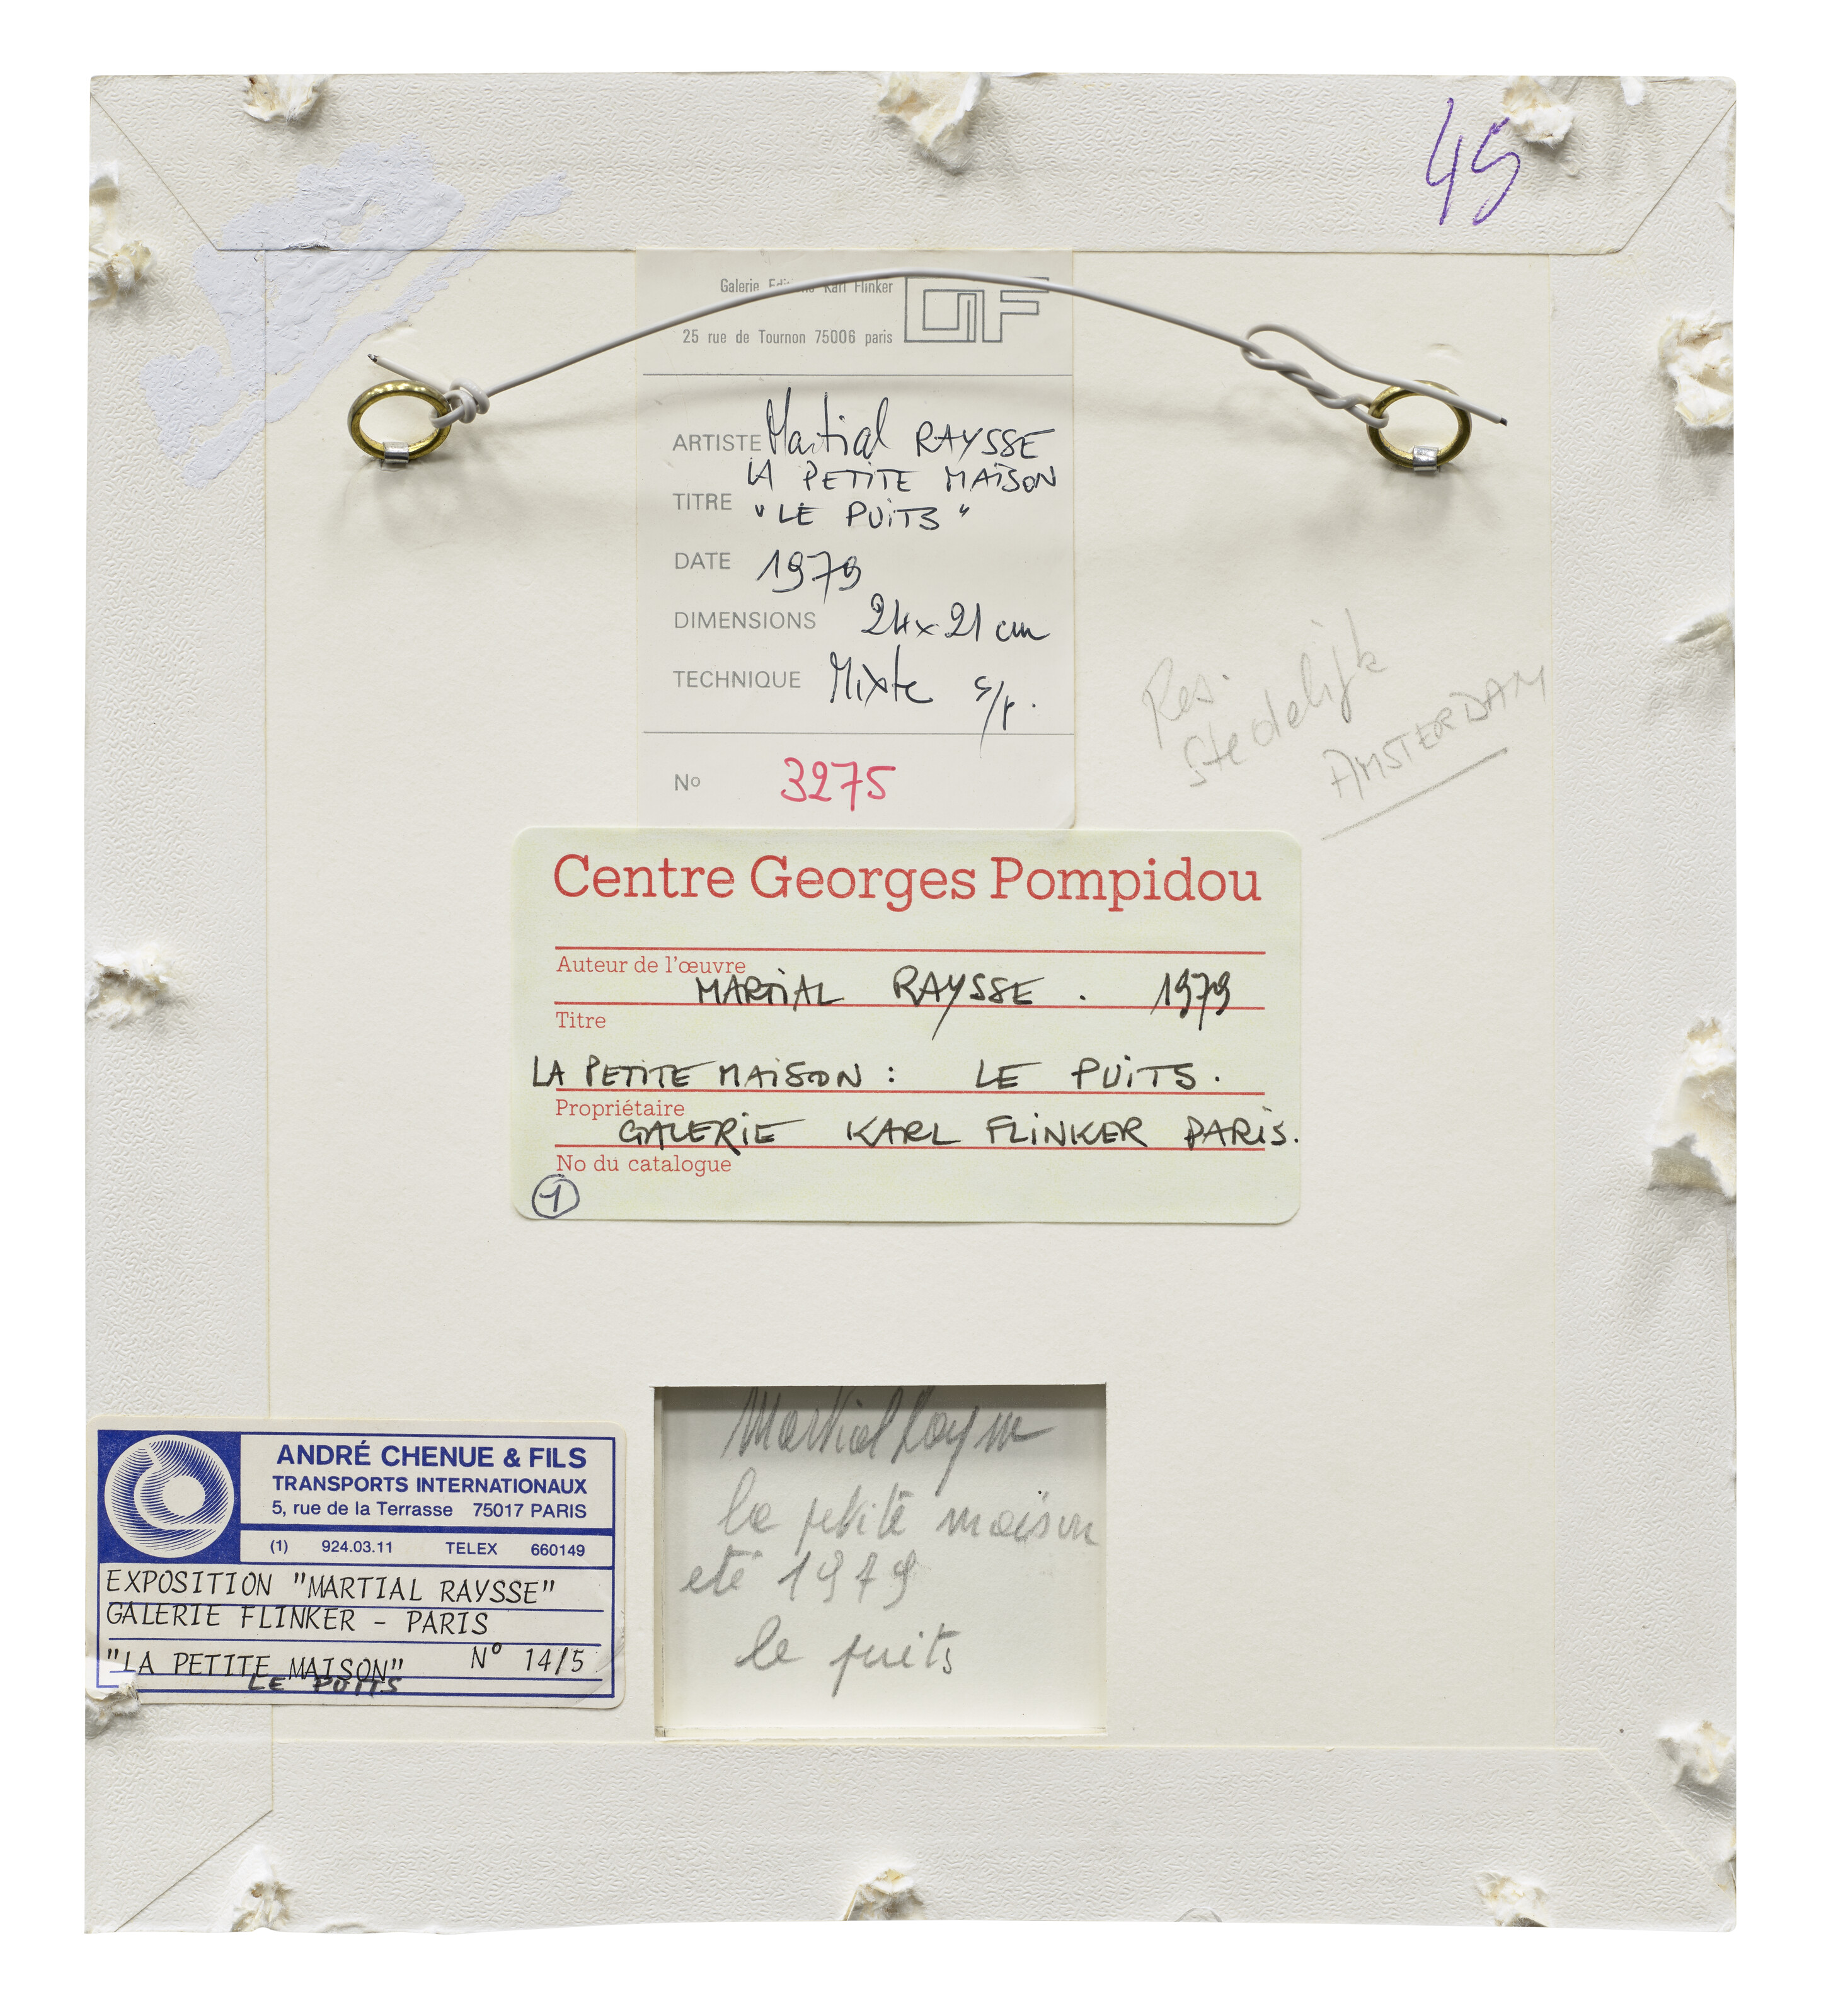 45
Galerie Editions Karl Flinker
25 rue de Tournon 75006 paris
ARTISTE Martial RAYSSE
LA PETITE MAISON
TITRE "LE PUITS"
DATE 1979
DIMENSIONS 24x21 cm
TECHNIQUE Mixte s/p.
No 3275
Res.
Stedelijk
AMSTERDAM
Centre Georges Pompidou
Auteur de l'œuvre
MARTIAL RAYSSE. 1979
Titre
LA PETITE MAISON: LE PUITS.
Propriétaire
GALERIE KARL FLINKER PARIS.
No du catalogue
1
Martial Raysse
la petite maison
eté 1979
le puits
ANDRÉ CHENUE & FILS
TRANSPORTS INTERNATIONAUX
5, rue de la Terrasse 75017 PARIS
(1) 924.03.11 TELEX 660149
EXPOSITION "MARTIAL RAYSSE"
GALERIE FLINKER - PARIS
"LA PETITE MAISON" N° 14/5
LE PUITS